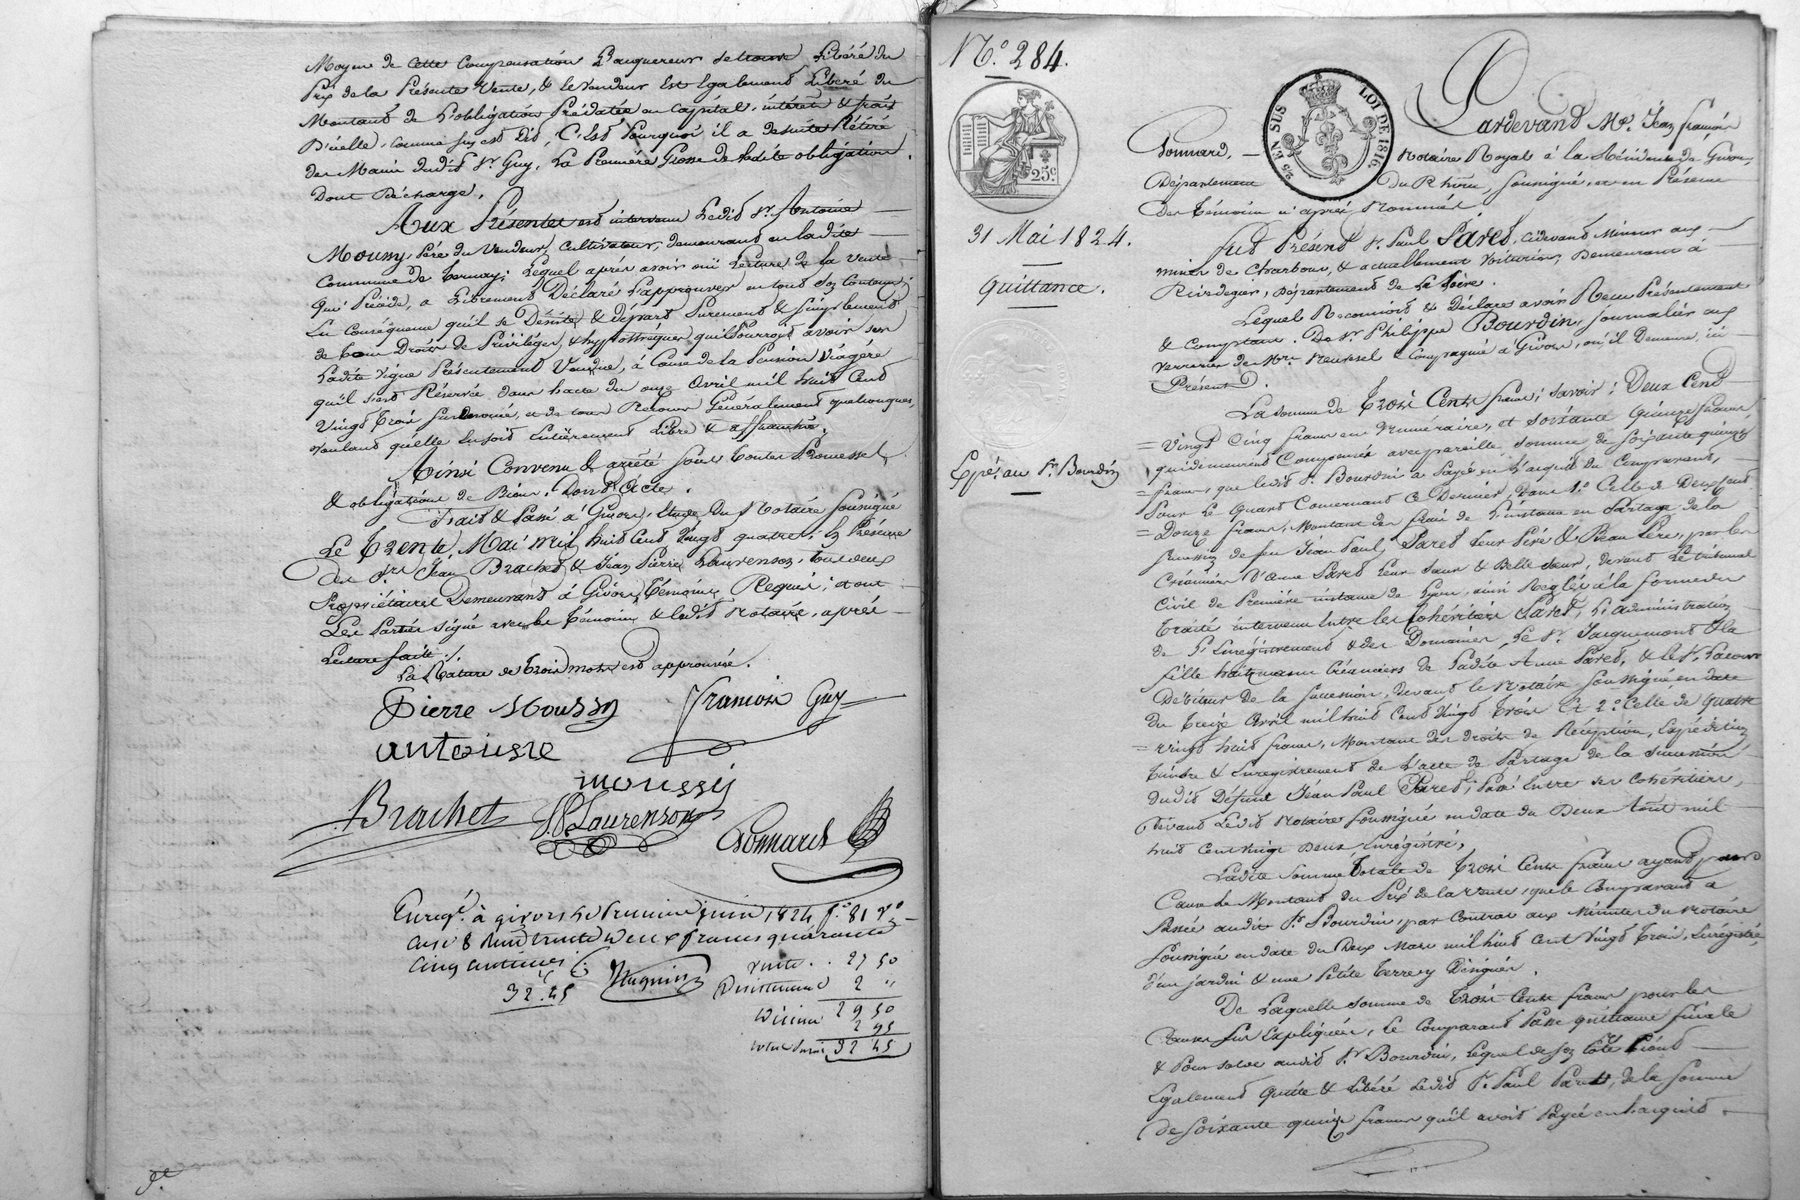 Moyen de Cette Compensation L'acquereur se trouve Libéré du
Prix de la Présente Vente, & le vendeur Est Egalement Libéré du
Montant de L'obligation Prédatée en capital, intérêts & frais
D'icelle, comme il est dit, C'est Pourquoi il a de suite Retiré
des Mains dudit Sr. Guy, La Première Grosse de ladite obligation
Dont Décharge.
Aux Présentes est intervenu Ledit Sr. Antoine
Moussy, Père du Vendeur, Cultivateur, demeurant en ladite
Commune de Ternay; Lequel après avoir ouï Lecture de la vente
qui Précède, a Librement Déclaré l'approuver en tout son Contenu;
En Conséquence qu'il se Désiste & départ Purement & Simplement
de tous Droits de Privilèges, & hypothèques qu'il Pourrait avoir sur
Ladite vigne Présentement Vendue, à Cause de la Pension Viagère
qu'il s'est Réservée dans l'acte du onze Avril mil huit Cent
Vingt Trois susénoncé, et de tous Recours Généralement quelconques,
voulant qu'elle en soit Entièrement Libre & affranchie.
Ainsi Convenu & arrêté sous toutes Promesses
& obligations de Biens. Dont Acte.
Fait & Passé à Givors, Etude du Notaire soussigné
Le Trente Mai mil huit Cent Vingt quatre, En Présence
des Srs. Jean Brachet & Jean Pierre Laurenson, tous deux
Propriétaires Demeurant à Givors, Témoins Requis; et ont
Les Parties signé avec les Témoins & ledit Notaire, après
Lecture faite./.
La Rature de trois mots est approuvée.
Pierre Moussy François Guy
antoiene
moussy
Brachet J.P. Laurenson
Ponnard
Enregé. à givors le premier juin 1824 fo. 81 Vo.
case 8 Reçu trente deux francs quarante
cinq centimes.
32.45
vente . . 27 50
Désistement 2 "
29 50
Décime 2 95
32 45
No. 284.
25c.
25 EN SUS
LOI DE 1816
31 Mai 1824.
Quittance.
Expé. au Sr. Bourdin
Pardevant Me. Jean François
Ponnard, Notaire Royal à la Résidence de Givors,
Département du Rhône, soussigné, et en Présence
Des Témoins ci après Nommés
Fut Présent Sr. Paul Paret, cidevant Mineur aux
mines de Charbon, & actuellement voiturier, Demeurant à
Rivedegier, Département de La Loire.
Lequel Reconnoit & Déclare avoir Reçu Présentement
& Comptant. De Sr. Philippe Bourdin, Journalier aux
verreries de Mrs. Neuvesel & Compagnie à Givors, où il Demeure, ici
Présent.
La somme de Trois Cents francs; savoir: Deux Cent
Vingt Cinq francs en Numéraire, et soixante Quinze francs
qui demeurent Compensés avec pareille somme de soixante quinze
francs, que ledit Sr. Bourdin a Payé en L'acquit du Comparant,
Pour Le Quart Concernant Ce Dernier, Dans 1o. Celle de Deux Cent
Douze francs, Montant des frais de L'instance en Partage de la
succession de feu Jean Paul Paret leur Père & Beau Père, par les
Créanciers d'Anne Paret leur sœur & Belle sœur, devant Le tribunal
Civil de Première instance de Lyon, ainsi Réglés à la forme du
Traité intervenu Entre les Cohéritiers Paret, L'administration
de L'Enregistrement & des Domaines, Le Sr. Jacquemont & la
fille Créanciers de Ladite Anne Paret, & le Sr.
Débiteur de la succession, devant le Notaire soussigné en date
du Treize Avril mil huit Cent Vingt Trois Et 2o. Celle de Quatre
vingt huit francs, Montant des droits de Réception, Expédition
timbre & Enregistrement de L'acte de Partage de la succession
dudit Défunt Jean Paul Paret, Passé Entre ses Cohéritiers,
Devant Ledit Notaire soussigné en date du Deux Août mil
huit Cent vingt Deux Enregistré,
Ladite Somme Totale de Trois Cents francs ayant pour
Cause Le Montant du Prix de la vente, que le Comparant a
Passée audit Sr. Bourdin, par Contrat aux Minutes du Notaire
soussigné en date du Deux Mars mil huit Cent Vingt Trois, Enregistré,
d'un jardin & une Petite Terre y Désignés.
De Laquelle somme de Trois Cents francs pour les
Causes sus Expliquées, Le Comparant Passe quittance finale
& Pour solde audit Sr. Bourdin, Lequel de son Côté Tient
Egalement Quitte & Libéré Ledit Sr. Paul Paret, de la somme
de soixante quinze francs qu'il avoit Payée en l'acquit